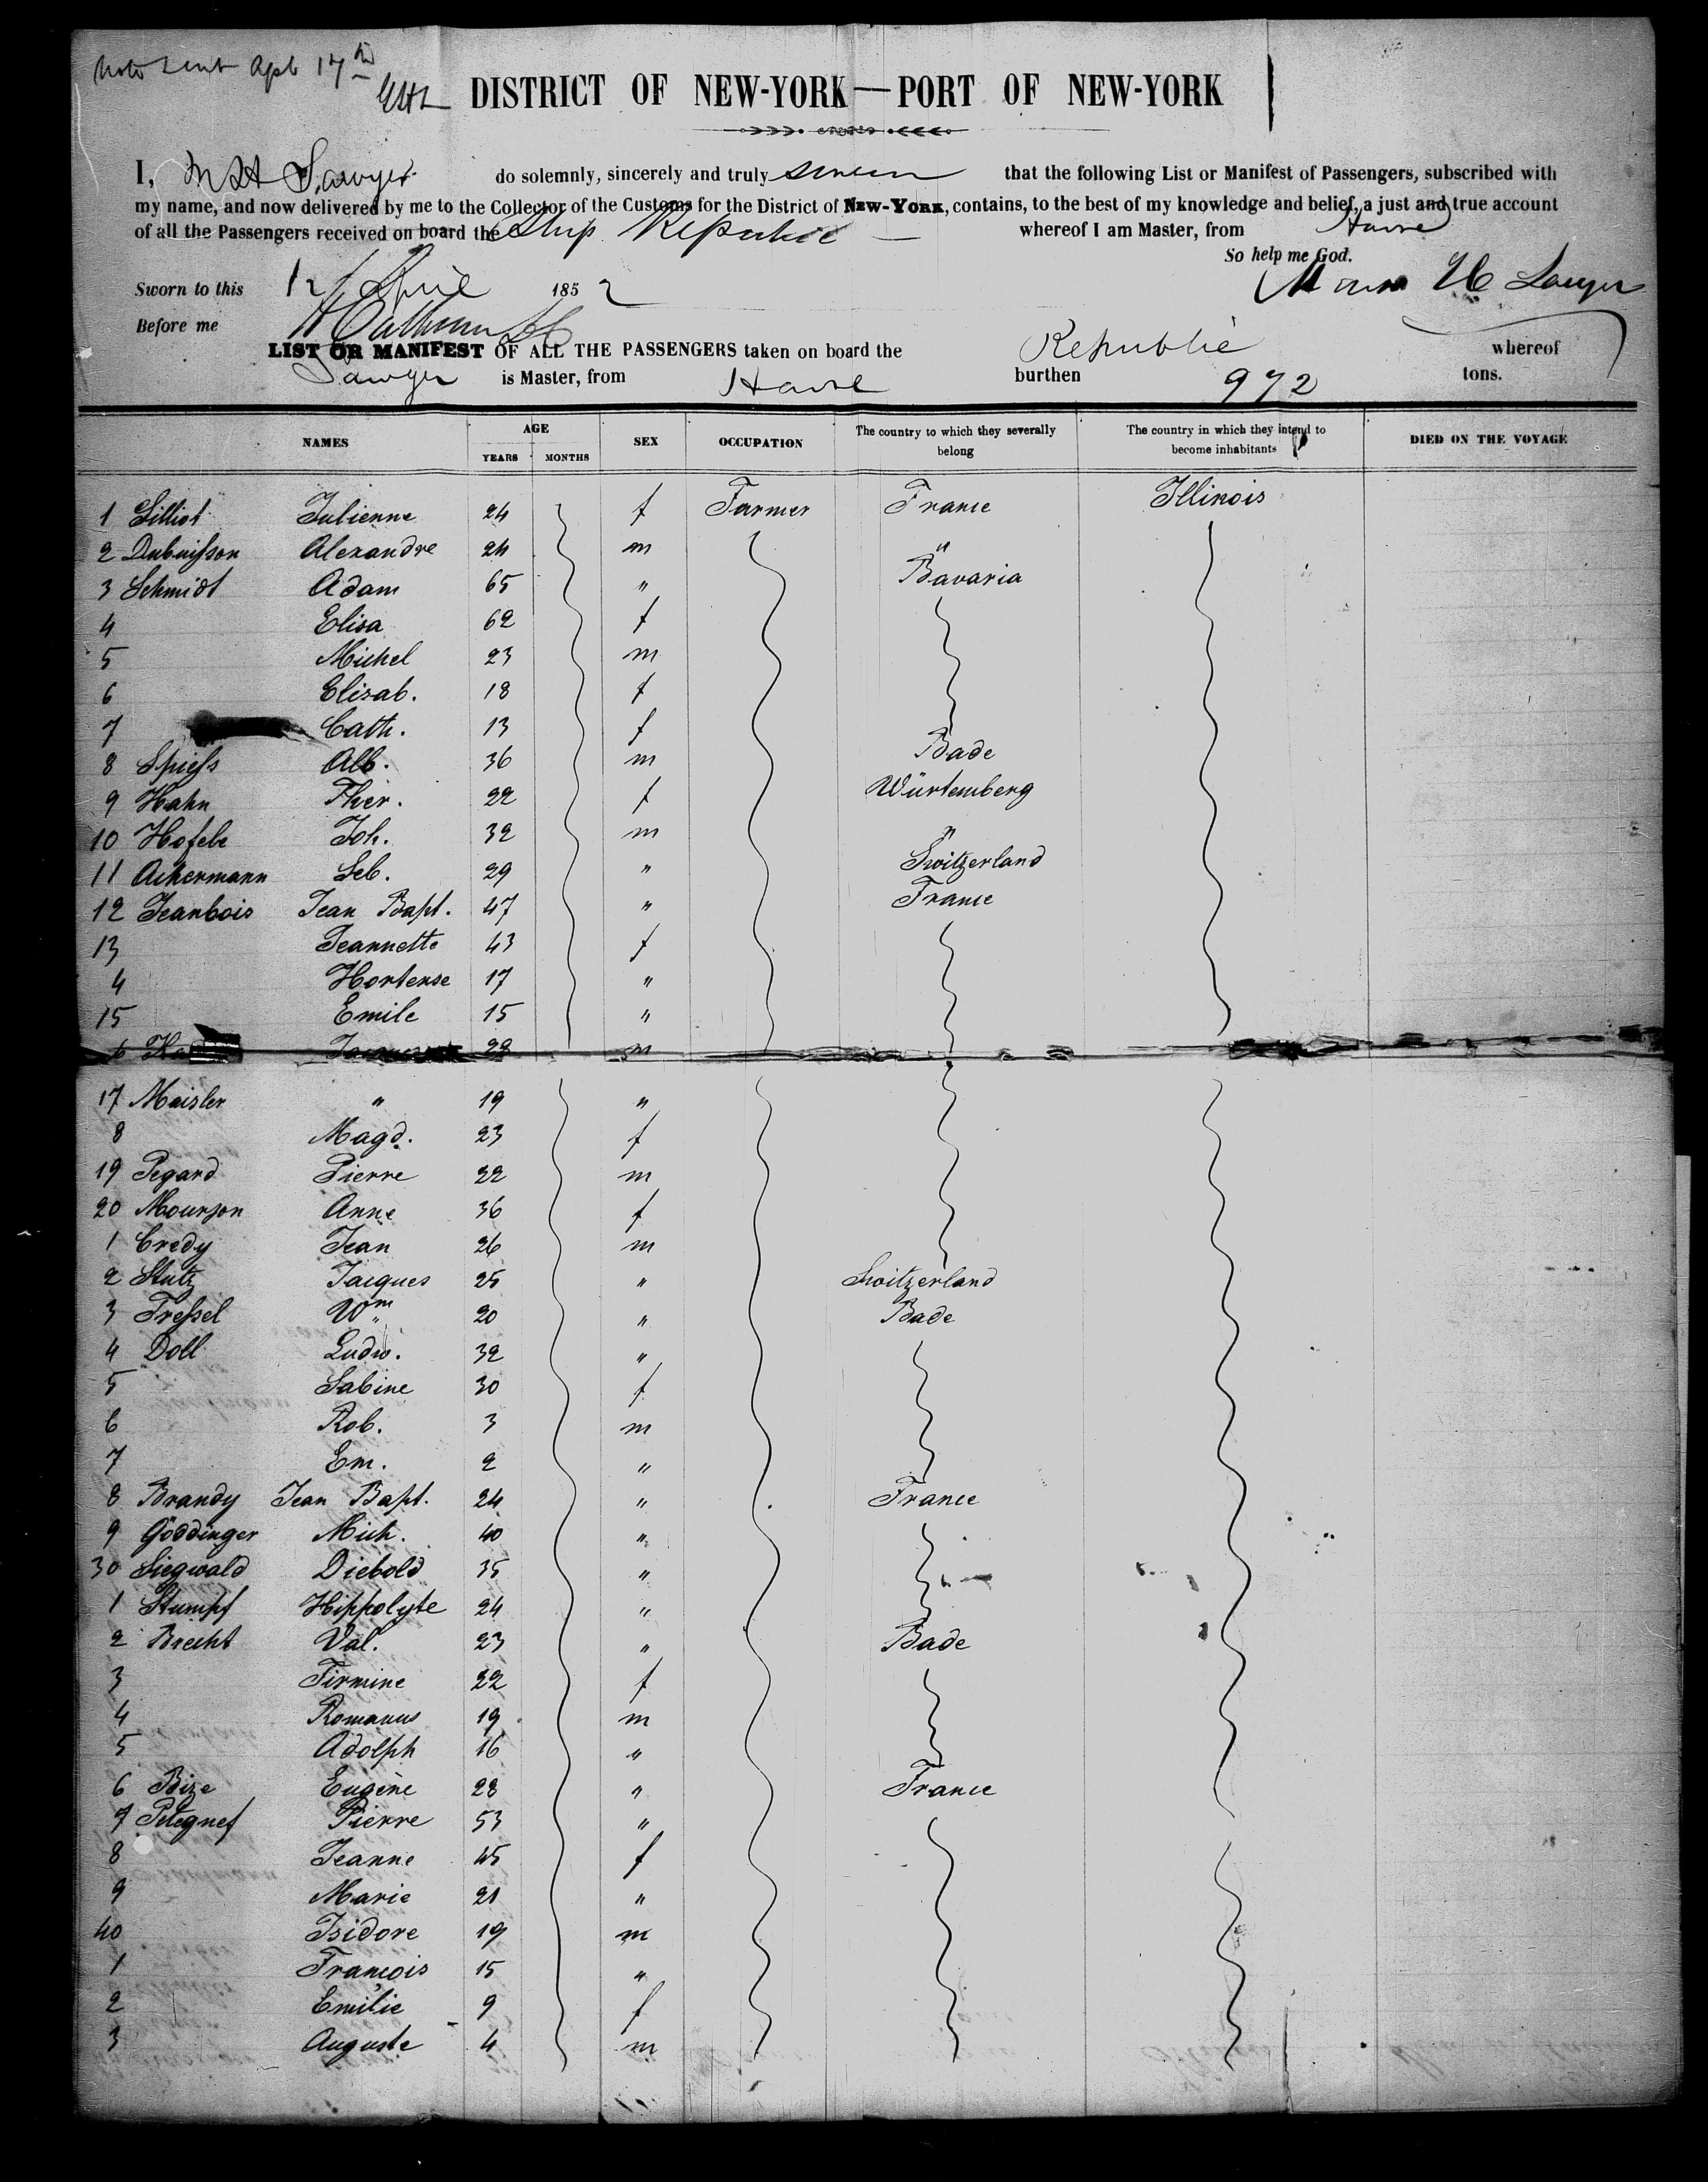 Note sent Apl 17th
DISTRICT OF NEW-YORK—PORT OF NEW-YORK
I, M H Sawyer do solemnly, sincerely and truly swear that the following List or Manifest of Passengers, subscribed with
my name, and now delivered by me to the Collector of the Customs for the District of NEW-YORK, contains, to the best of my knowledge and belief, a just and true account
of all the Passengers received on board the Ship Republic whereof I am Master, from Havre
So help me God.
Sworn to this 12 April 1852
H Sawyer
Before me
LIST OR MANIFEST OF ALL THE PASSENGERS taken on board the Republic whereof
Sawyer is Master, from Havre burthen 972 tons.
NAMES AGE YEARS MONTHS SEX OCCUPATION The country to which they severally belong The country in which they intend to become inhabitants DIED ON THE VOYAGE
1 Silliot Julienne 24 f Farmer France Illinois
2 Dubuisson Alexandre 24 m "
3 Schmidt Adam 65 " Bavaria
4 Elisa 62 f
5 Michel 23 m
6 Elisab. 18 f
7 Cath. 13 f
8 Spiess Alb. 36 m Bade
9 Hahn Ther. 22 f Würtemberg
10 Hofele Joh. 32 m "
11 Ackermann Seb. 29 " Switzerland
12 Jeanbois Jean Bapt. 47 " France
13 Jeannette 43 f
4 Hortense 17 "
15 Emile 15 "
6 28 m
17 Maisler " 19 "
8 Magd. 23 f
19 Pegard Pierre 22 m
20 Mourson Anne 36 f
1 Credy Jean 26 m
2 Stutz Jacques 25 " Switzerland
3 Tressel Wm 20 " Bade
4 Doll Ludw. 32 "
5 Sabine 30 f
6 Rob. 3 m
7 Em. 2 "
8 Brandy Jean Bapt. 24 " France
9 Göddinger Mich. 40 "
30 Siegwald Diebold 35 "
1 Stumpf Hippolyte 24 "
2 Brecht Val. 23 " Bade
3 Firmine 22 f
4 Romanus 19 m
5 Adolph 16 "
6 Bize Eugène 28 " France
7 Petegnef Pierre 53 "
8 Jeanne 45 f
9 Marie 21 "
40 Isidore 19 m
1 Francois 15 "
2 Emilie 9 f
3 Auguste 4 m